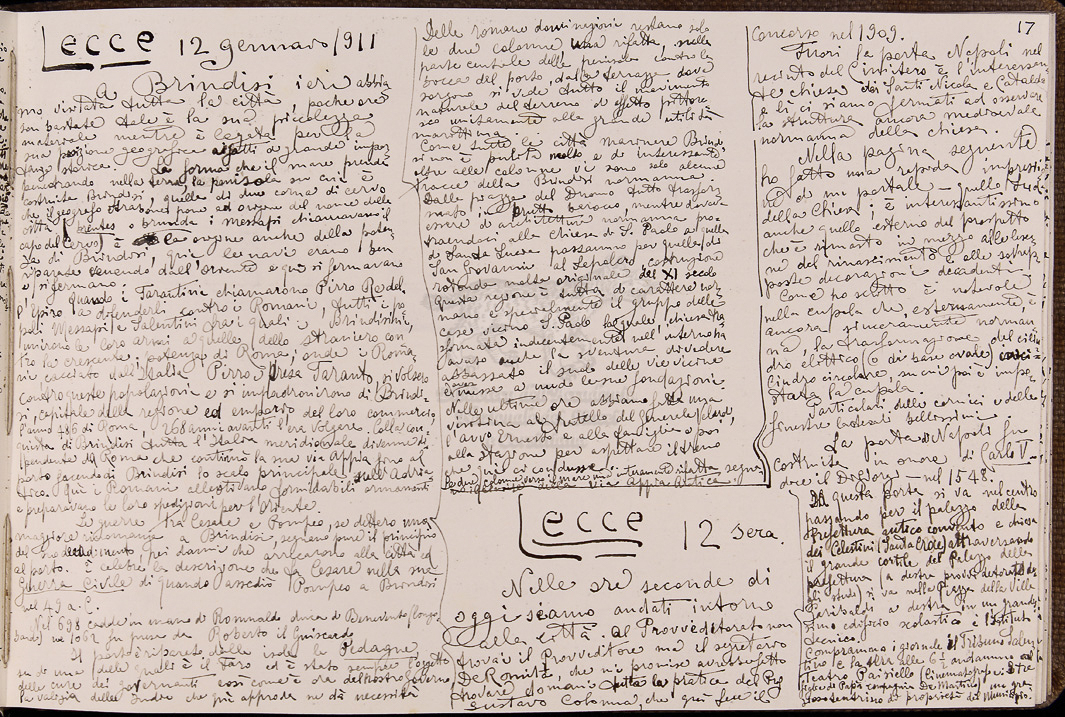 Lecce 12 gennaro 1911
A Brindisi ieri abbia
mo visitata tutta la città, poche ore
son bastate tale è la sua piccolezza
materiale mentre è legata per la
sua posizione geografica a fatti di grande impor
tanza storica. La forma che il mare prende
penetrando nella terra, la penisola su cui è
costruita Brindisi, quella di due corna di cervo
che il geografo Strabone pone ad origine del nome della
città (brentes o brunda i messapi chiamavano il
capo del cervo) è la origine anche della poten
za di Brindisi, qui le navi erano ben
riparate venendo dall'oriente e qui si fermavano
e si fermano.
Quando i Tarantini chiamarono Pirro Re del
l'Epiro a difenderli contro i Romani, tutti i po
poli Messapi e Salentini fra i quali i Brindisini,
unirono le loro armi a quelle dello straniero con
tro la crescente potenza di Roma, onde i Roma
ni cacciato dall'Italia Pirro, presa Taranto, si volsero
contro queste popolazioni e si impadronirono di Brindi
si, capitale della regione ed emporio del loro commercio
l'anno 486 di Roma 268 anni avanti l'era Volgare. Colla con
quista di Brindisi tutta l'Italia meridionale divenne di
pendente da Roma che continuò la sua via Appia fino al
porto facendo di Brindisi lo scalo principale dell'Adria
tico. Qui i Romani allestivano formidabili armamenti
e preparavano le loro spedizioni per l'Oriente.
Le guerre tra Cesare e Pompeo, se dettero una
maggiore rinomanza a Brindisi, segnano pure il principio
del suo decadimento pei danni che arrecarono alla città ed
al porto. È celebre la descrizione che fa Cesare nella sua
Guerra Civile di quando assediò Pompeo a Brindisi
nel 49 a. C.
Nel 698 cadde in mano di Romualdo duca di Benevento (longo
bardo) nel 1062 fu presa da Roberto il Guiscardo.
Il porto è riparato dalle isole le Pedagne
su di una delle quali è il Faro ed è stato sempre l'oggetto
delle cure dei governanti così com'è ora del nostro governo
la valigia delle Indie che qui approda ne dà necessità
Della romana dominazione restano solo
le due colonne una rifatta, nella
parte centrale della penisola contro la
bocca del porto, dalla terrazza dove
sorgono si vede tutto il movimento
naturale del terreno di effetto pittore
sco unitamente alla grande utilità
marittima.
Come tutte le città marinere Brindi
si non è pulita molto e di interessante
oltre alle colonne vi sono solo alcune
tracce della Brindisi normanna.
Dalla piazza del Duomo tutto trasfor
mato in brutto barocco, mentre doveva
essere d'architettura normanna pro
traendoci alla chiesa di S. Paolo a quella
di Santa Lucia passammo per quella di
San Giovanni al Sepolcro, costruzione
rotonda molto originale del XI secolo
Questa regione è tutta di carattere nor
manno e specialmente il gruppo delle
case vicino S. Paolo la quale, chiesa tra
sformata indecentemente nell'interno ha
avuto anche la sventura di vedere
abbassato il suolo delle vie vicine
e messe a nudo le sue fondazioni.
Nelle ultime ore abbiamo fatta una
visitina al fratello del Generale
l'avv. Ernesto e alla famiglia e poi
alla stazione per aspettare il treno
che qui ci condusse.
Le due colonne verso il mare una interamente rifatta segna
della Via Appia Antica.
Lecce 12 sera
Nelle ore seconde di
oggi siamo andati intorno
alla città. Al Provveditorato non
trovai il Provveditore ma il segretario
De Romita, che mi promise avrebbe fatto
trovare domani tutta la pratica del Prof
Gustavo Colonna, che qui fece il
17
Concorso nel 1909.
Fuori la porta Napoli nel
recinto del Cimitero è l'interessan
te chiesa dei Santi Nicola e Cataldo
e lì ci siamo fermati ad osservare
la struttura ancora medioevale
normanna della chiesa.
Nella pagina seguente
ho fatto una rapida impressio
ne del portale – quello
della Chiesa; è interessantissimo
anche quello esterno del prospetto
che è rimasto in mezzo alle lese
ne del rinascimento e alle sovrap
poste decorazioni decadenti.
Come ho scritto è notevole
nella cupola che, esternamente, è
ancora sinceramente norman
na, la trasformazione del cilin
dro elittico (o di base ovale) in ci
lindro circolare su cui poi è impo
stata la cupola.
Particolari delle cornici e delle
finestre laterali bellissimi.
La porta di Napoli fu
costruita in onore di Carlo V.
dove il De Giorgi – nel 1548.
Da questa porta si va nel centro
passando per il palazzo della
Prefettura antico convento e chiesa
dei Celestini (Santa Croce) attraversando
il grande cortile del Palazzo della
prefettura (a destra provveditorato de
gli studi) si va nella Piazza della Villa
Garibaldi a destra in un grandis
simo edificio scolastico è l'Istituto
Tecnico.
Comprammo i giornali il Tribuno Salen
tino e la sera alle 6½ andammo al
Teatro Paisiello (Cinematografo e
compagnia De Martino) un gra
zioso teatrino di proprietà del Municipio.